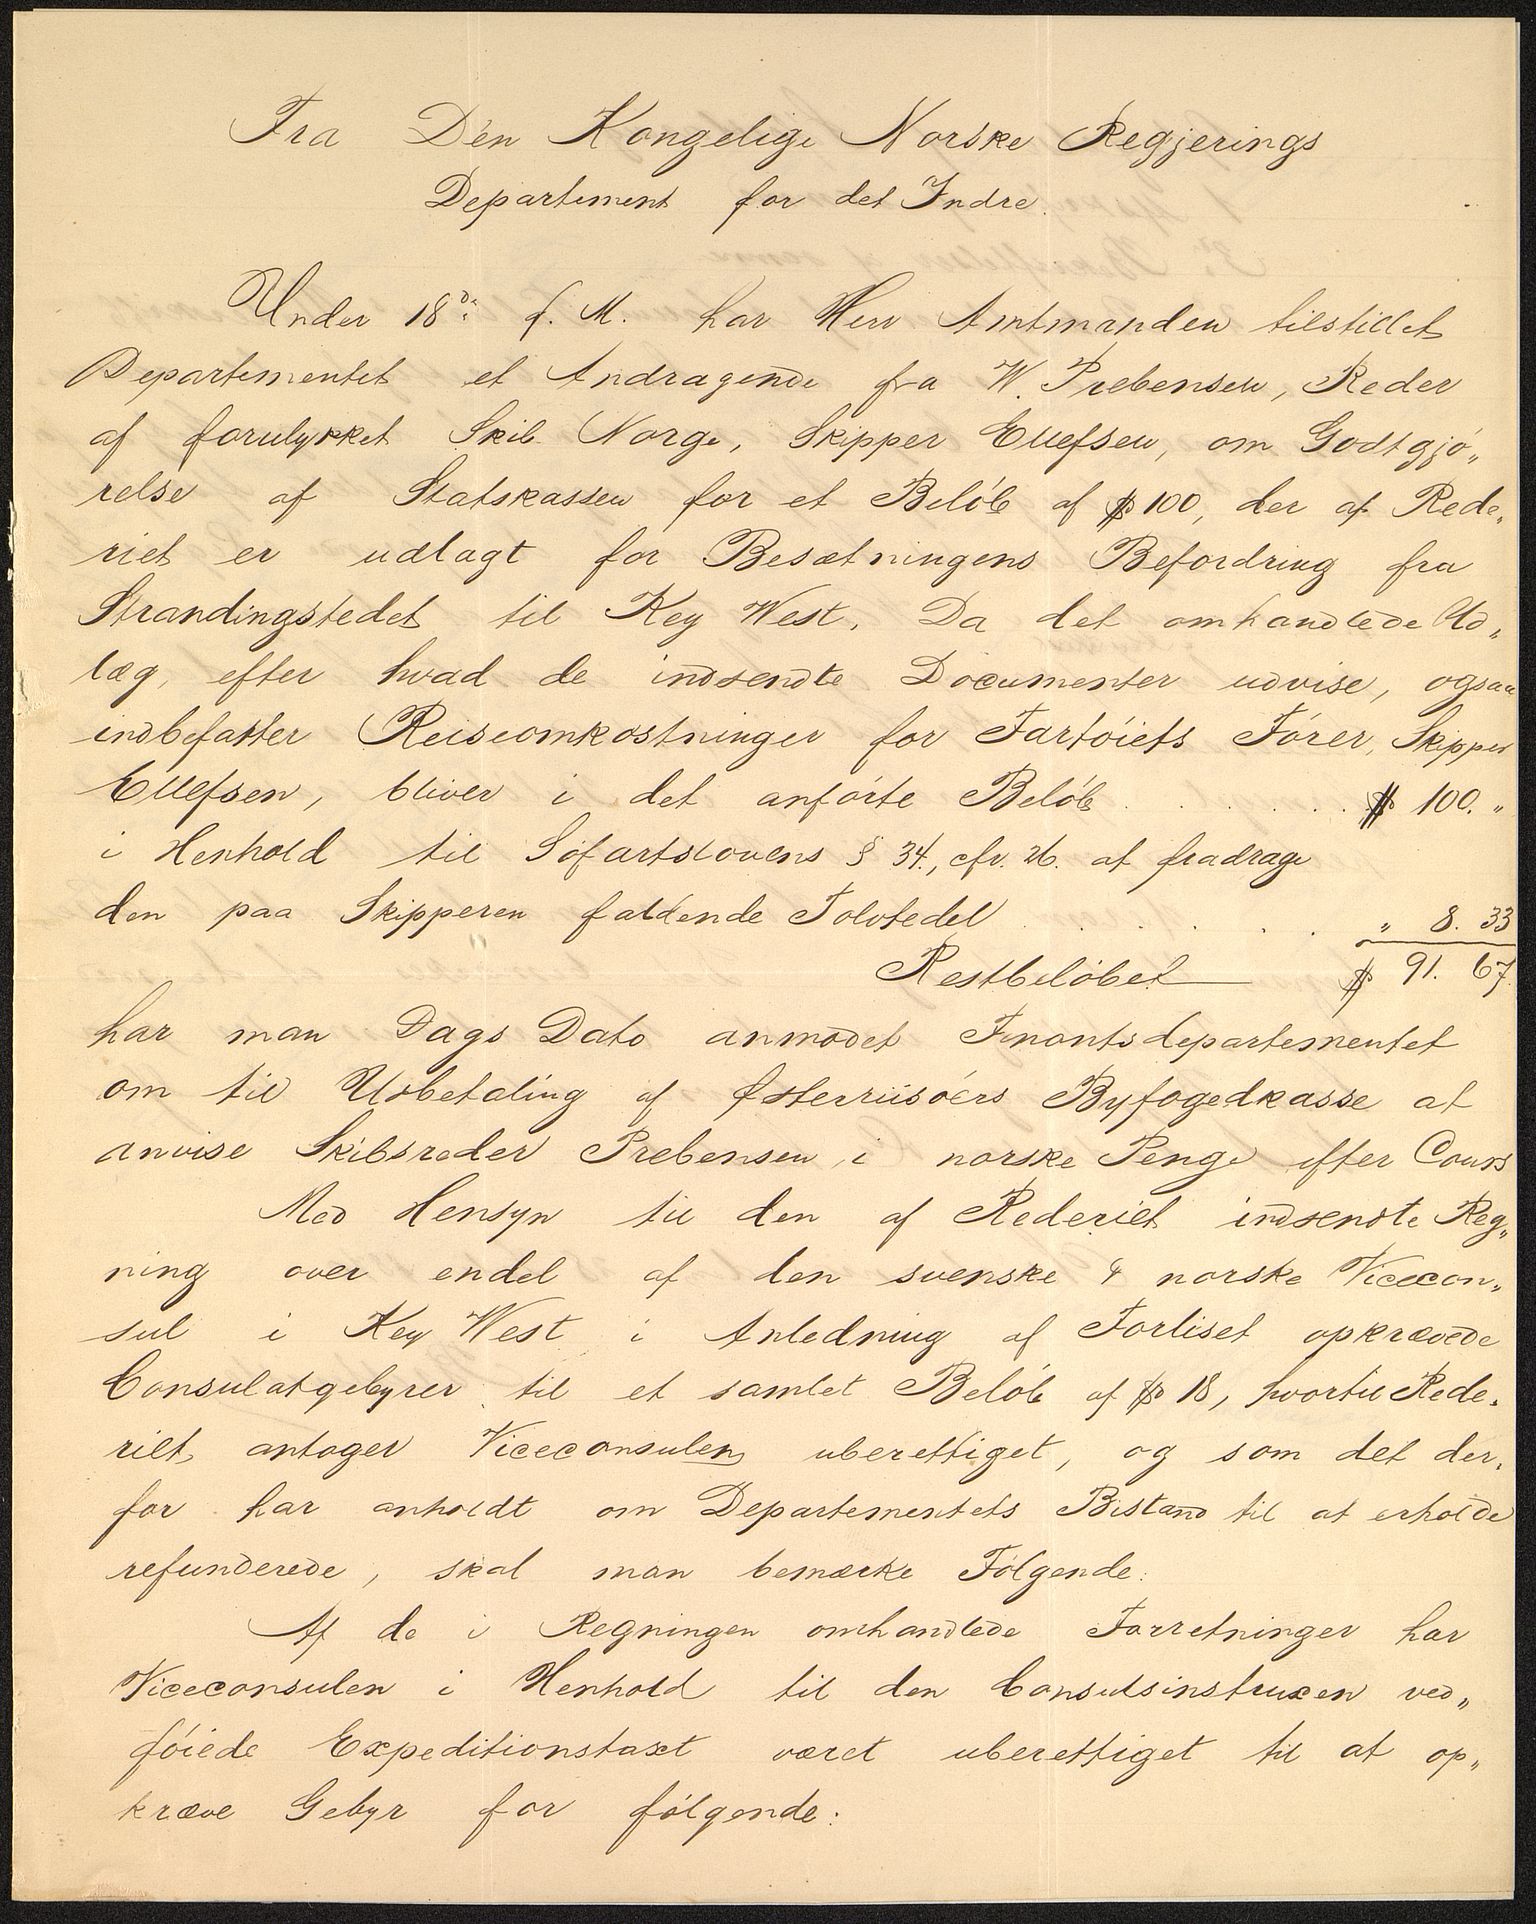 Fra Den Kongelige Norske Regjerings
Departement for det Indre.
Under 18d: f. M. har Herr Amtmanden tilstillet
Departementet et Andragende fra W. Prebensen, Reder
af forulykket Skib Norge, Skipper Ellefsen, om Godtgjö„
relse af Statskassen for et Belöb af $ 100, der af Rede„
riet er udlagt for Besætningens Befordring fra
Strandingstedet til Key West. Da det omhandlede Ud„
læg, efter hvad de indsendte Documenter udvise, ogsaa
indbefatter Reiseomkostninger for Fartöiets Förer, Skipper
Ellefsen, bliver i det anförte Belöb . . . . . . $ 100. „
i Henhold til Söfartslovens § 34., cfr. 26. at fradrage
den paa Skipperen faldende Tolvtedel . . . . . „ 8. 33
Restbelöbet $ 91. 67.
har man Dags Dato anmodet Finantsdepartementet
om til Udbetaling af Østerriisöers Byfogedkasse at
anvise Skibsreder Prebensen i norske Penge efter Cours
Med Hensyn til den af Rederiet indsendte Reg„
ning over endel af den svenske & norske Vicecon„
sul i Key West i Anledning af Forliset opkrævede
Consulatgebyrer til et samlet Belöb af $ 18, hvortil Rede„
riet antager Viceconsulen uberettiget, og som det der„
for har anholdt om Departementets Bistand til at erholde
refunderede, skal man bemærke Fölgende:
Af de i Regningen omhandlede Forretninger har
Viceconsulen i Henhold til den Consulsinstruxen ved„
föiede Expeditionstaxt været uberettiget til at op„
kræve Gebyr for fölgende: